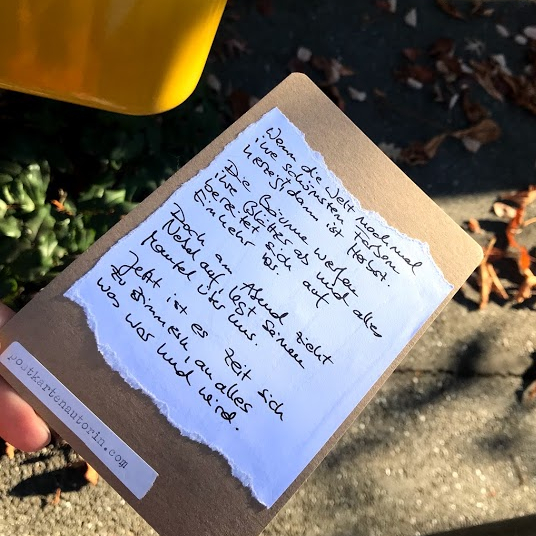 Wenn die Welt nochmal
ihre schönsten Farben
herzeigt dann ist Herbst.
Die Bäume werfen
ihre Blätter ab und alles
bereitet sich auf
Einkehr
Doch am Abend zieht
Nebel auf, legt seinen
Mantel über uns.
Jetzt ist es Zeit sich
zu erinnern, an alles
was war und wird.
postkartenautorin.com